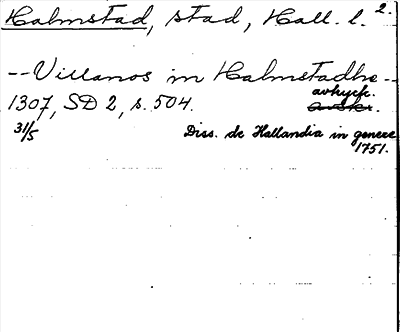 Halmstad, stad, Hall. l. 2.
--Villanos in Halmstadhe--
1307, SD 2, s. 504. avtryck.
31/5 Diss. de Hallandia in genere
1751.